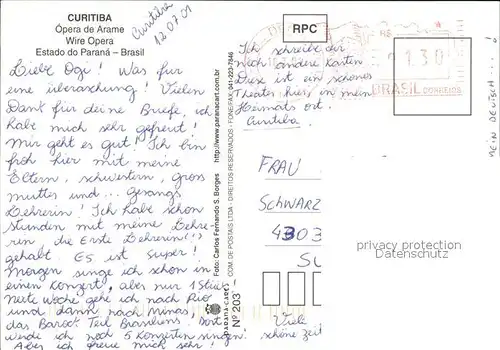 CURITIBA
Ópera de Arame
Wire Opera
Estado do Paraná – Brasil
Curitiba
12.07.01
Liebe Ogi! Was für
eine überaschung! Vielen
Dank für deine Briefe, ich
habe mich sehr gefreut!
Mir geht es gut! Ich bin
froh hier mit meine
Eltern, schwestern, Gross
mutter und... Gesangs
Lehrerin! Ich habe schon
Stunden mit meine Lehre-
rin, die Erste Lehrerin!!
gehabt. Es ist super!
Morgen singe ich schon in
einem Konzert, aber nur 1 Stück.
Neste Woche gehe ich nach Rio
und dann nach Minas,
das Barock Teil Brasiliens. Dort
werde ich noch 5 Konzerten singen.
Aber ich freue mich sehr!
Foto: Carlos Fernando S. Borges
http://www.paranacart.com.br
COM. DE POSTAIS LTDA - DIREITOS RESERVADOS - FONE/FAX 041-223-7846
paraná-card
Nº 203
RPC
130
BRASIL CORREIOS
Ich schreibe dir
noch andere Karten
Diese ist ein schönes
Theater hier, in mein
Heimats ort.
Curitiba
MEIN DEUTSCH...!
FRAU
SCHWARZ
4303
privacy protection
Datenschutz
Viele
schöne Zeit